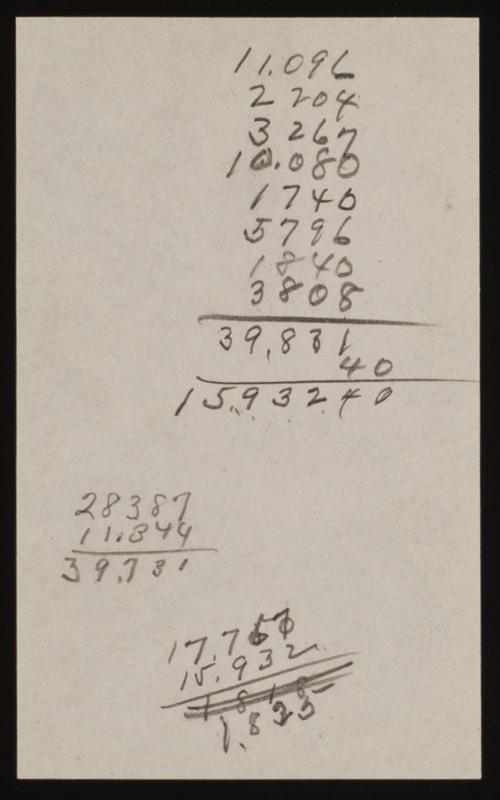 11.096
2 204
3 267
10.080
1 740
5796
1840
3808
39,831
40
15,93240
28387
11.344
39.731
17.767
15.932
1818
1.835